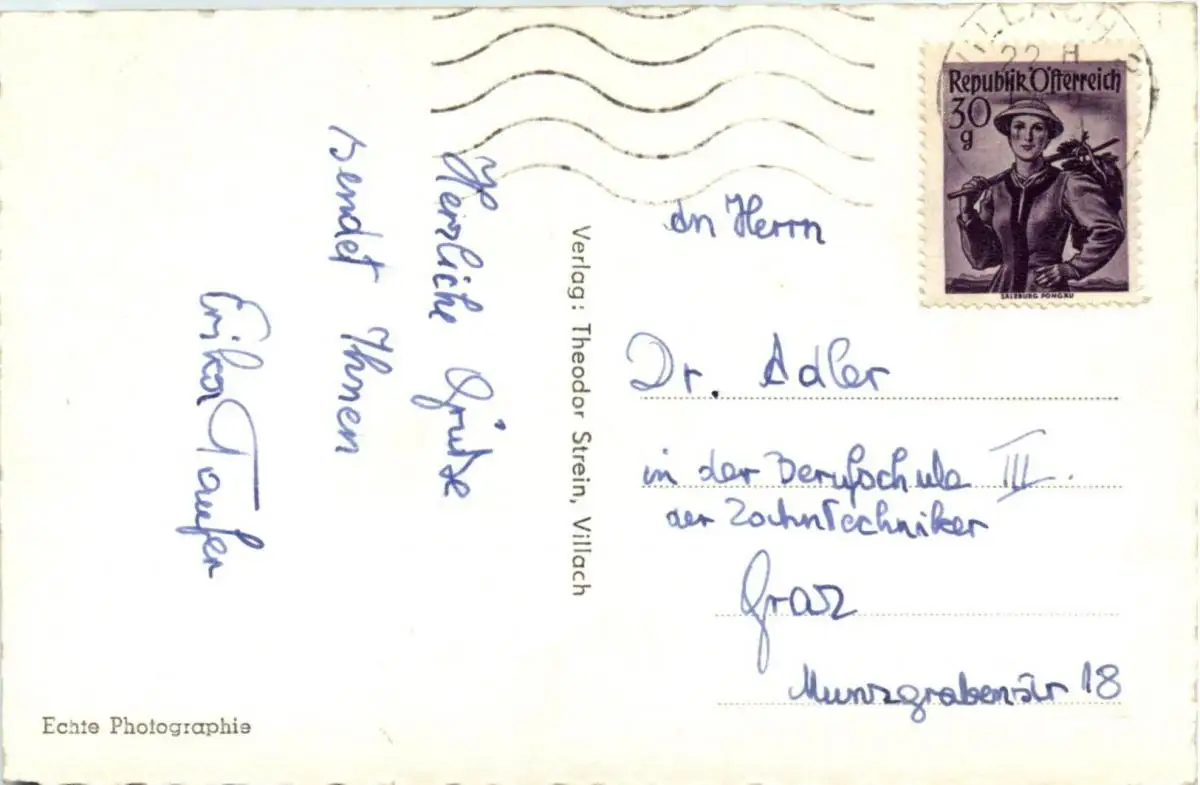 VILLACH
22. II
Republik Österreich
30
g
SALZBURG PONGAU
Herzliche Grüße
sendet Ihnen
Erika Taufer
Verlag: Theodor Strein, Villach
An Herrn
Dr. Adler
in der Berufschule III.
der Zahntechniker
Graz
Munzgrabenstr 18
Echte Photographie